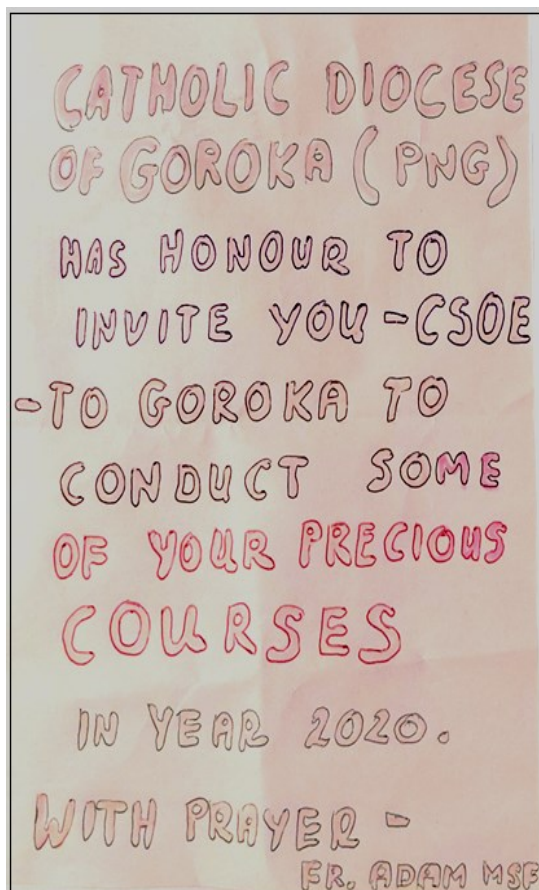 CATHOLIC DIOCESE
OF GOROKA (PNG)
HAS HONOUR TO
INVITE YOU - CSOE
- TO GOROKA TO
CONDUCT SOME
OF YOUR PRECIOUS
COURSES
IN YEAR 2020.
WITH PRAYER -
FR. ADAM MSF